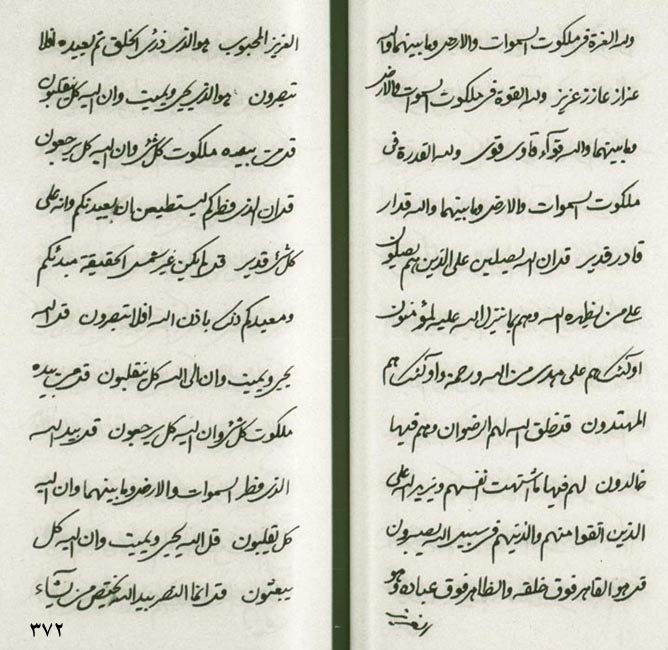 ولله العزة فى ملكوت السموات والارض وما بينهما والله
عزاز عازز عزيز ولله القوة فى ملكوت السموات والارض
وما بينهما والله قوآء قاوى قوى ولله القدرة فى
ملكوت السموات والارض وما بينهما والله قدار
قادر قدير قد ان الله يصلين على الذين هم يصلون
على من يظهره الله وهم بما ينزل الله عليه لمؤمنون
اولئك هم على هدى من الله ورحمة واولئك هم
المهتدون قد خلق الله لهم الرضوان وهم فيها
خالدون لهم فيها ما اشتهت انفسهم ويزيد الله على
الذين اتقوا منهم والذينهم فى سبيل الله يصبرون
قد هو القاهر فوق خلقه والظاهر فوق عباده وهو
العزيز المحبوب هو الذى ذرئ الخلق ثم يعيده افلا
تبصرون هو الذى يحيى ويميت وان اليه كل ينقلبون
قد من بيده ملكوت كل شئ وان اليه كل يرجعون
قد ان الذى فطركم ليستطيعن ان يعيدنكم وانه على
كل شئ قدير قد ما يكن غير شمس الحقيقة مبدئكم
ومعيدكم ذلك باذن الله افلا تبصرون قد الله
يحيى ويميت وان الى الله كل ينقلبون قد من بيده
ملكوت كل شئ وان اليه كل يرجعون قد بيد الله
الذى فطر السموات والارض وما بينهما وان اليه
كل تقلبون قل الله يحيى ويميت وان اليه كل
يبعثون قد انما النصر بيد الله يختص من يشآء
٣٧٢